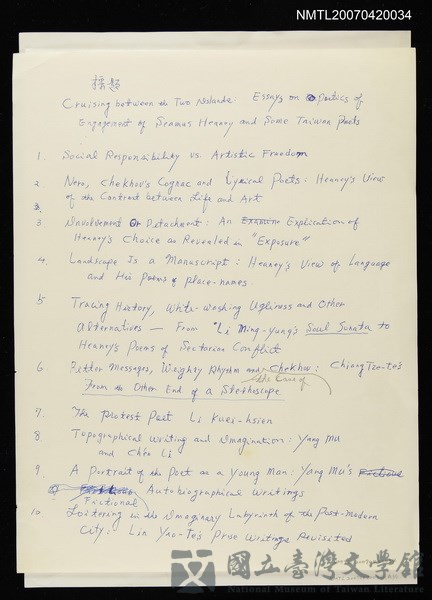 NMTL20070420034
擬題
Cruising between the Two Islands: Essays on Poetics of
Engagement of Seamus Heaney and Some Taiwan Poets
1. Social Responsibility vs. Artistic Freedom
2. Nero, Chekhov's Cognac and Lyrical Poets: Heaney's View
of the Contract between Life and Art
3. Involvement Or Detachment: An Examine Explication of
Heaney's Choice as Revealed in "Exposure"
4. Landscape Is a Manuscript: Heaney's View of Language
and His Poems of place-names
5. Tracing History, White-washing Ugliness and Other
Alternatives — From Li Ming-yung's Soul Sonata to
Heaney's Poems of Sectarian Conflict
6. Bitter Messages, Weighty Rhythm and Chekhov: Chiang Tzu-te's
the Case of
From the Other End of a Stethoscope
7. The Protest Poet Li Kuei-hsien
8. Topographical Writing and Imagination: Yang Mu
and Ch'en Li
9. A Portrait of the Poet as a Young Man: Yang Mu's Fictious
Autobiographical Writings
Fictional
10. Loitering in the Imaginary Labyrinth of the Post-Modern
City: Lin Yao-Te's Prose Writings Revisited
國立臺灣文學館
National Museum of Taiwan Literature